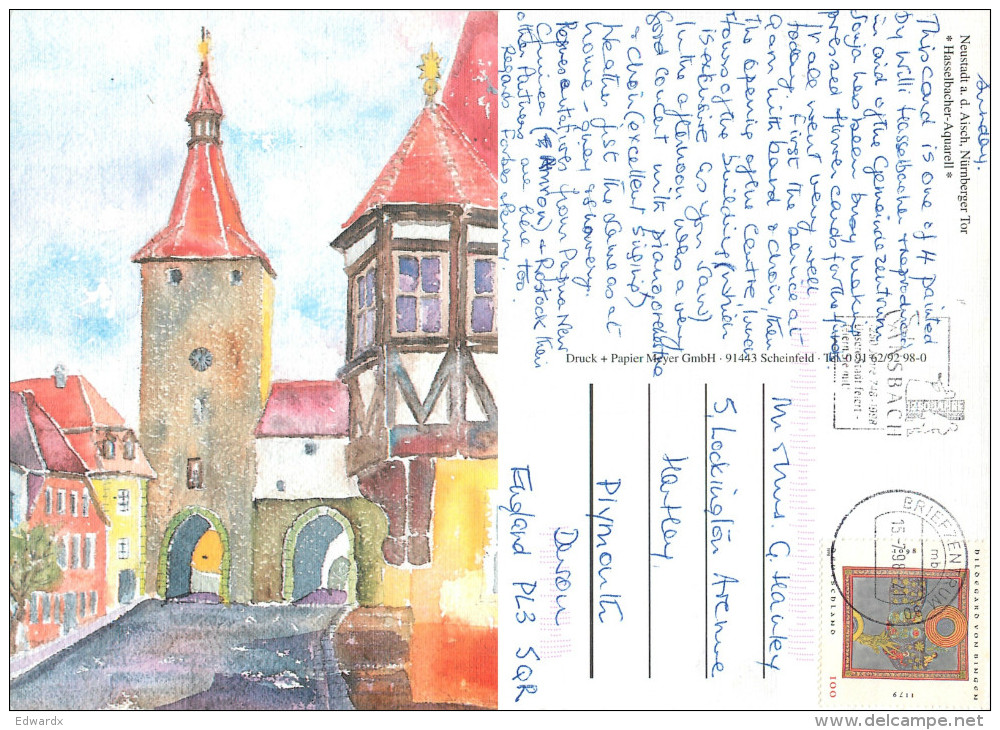 Neustadt a. d. Aisch, Nürnberger Tor
* Hasselbacher-Aquarell *
Sunday.
This card is one of 4 painted
by Willi Hasselbacher & reproduced
in aid of the Gemeindezentrum.
has been busy making
pressed flower cards for the funds
It all went very well
today. First the service at
with band & choir, then
the opening of the Centre, &
tours of the building (which
is extensive as you saw)
In the afternoon was a very
good concert with piano, cordless
& choir (excellent singing)
Weather just the same as at
home - grey & showery.
Representatives from Papua New
Guinea & Rostock their
other Partners are here too.
Regards
Druck + Papier Meyer GmbH · 91443 Scheinfeld · Tel. 0 91 62/92 98-0
Mr & Mrs. G. Hawley
5, Lockington Avenue
Hartley,
Plymouth
Devon
England PL3 5QR
ANSBACH
1250 Jahre 748-1998
Unsere Stadt feiert -
feiern Sie mit
BRIEFZENTRUM
15.-7.98
mb
HILDEGARD VON BINGEN
1098
1179
DEUTSCHLAND
100
Edwardx
delcampe.net